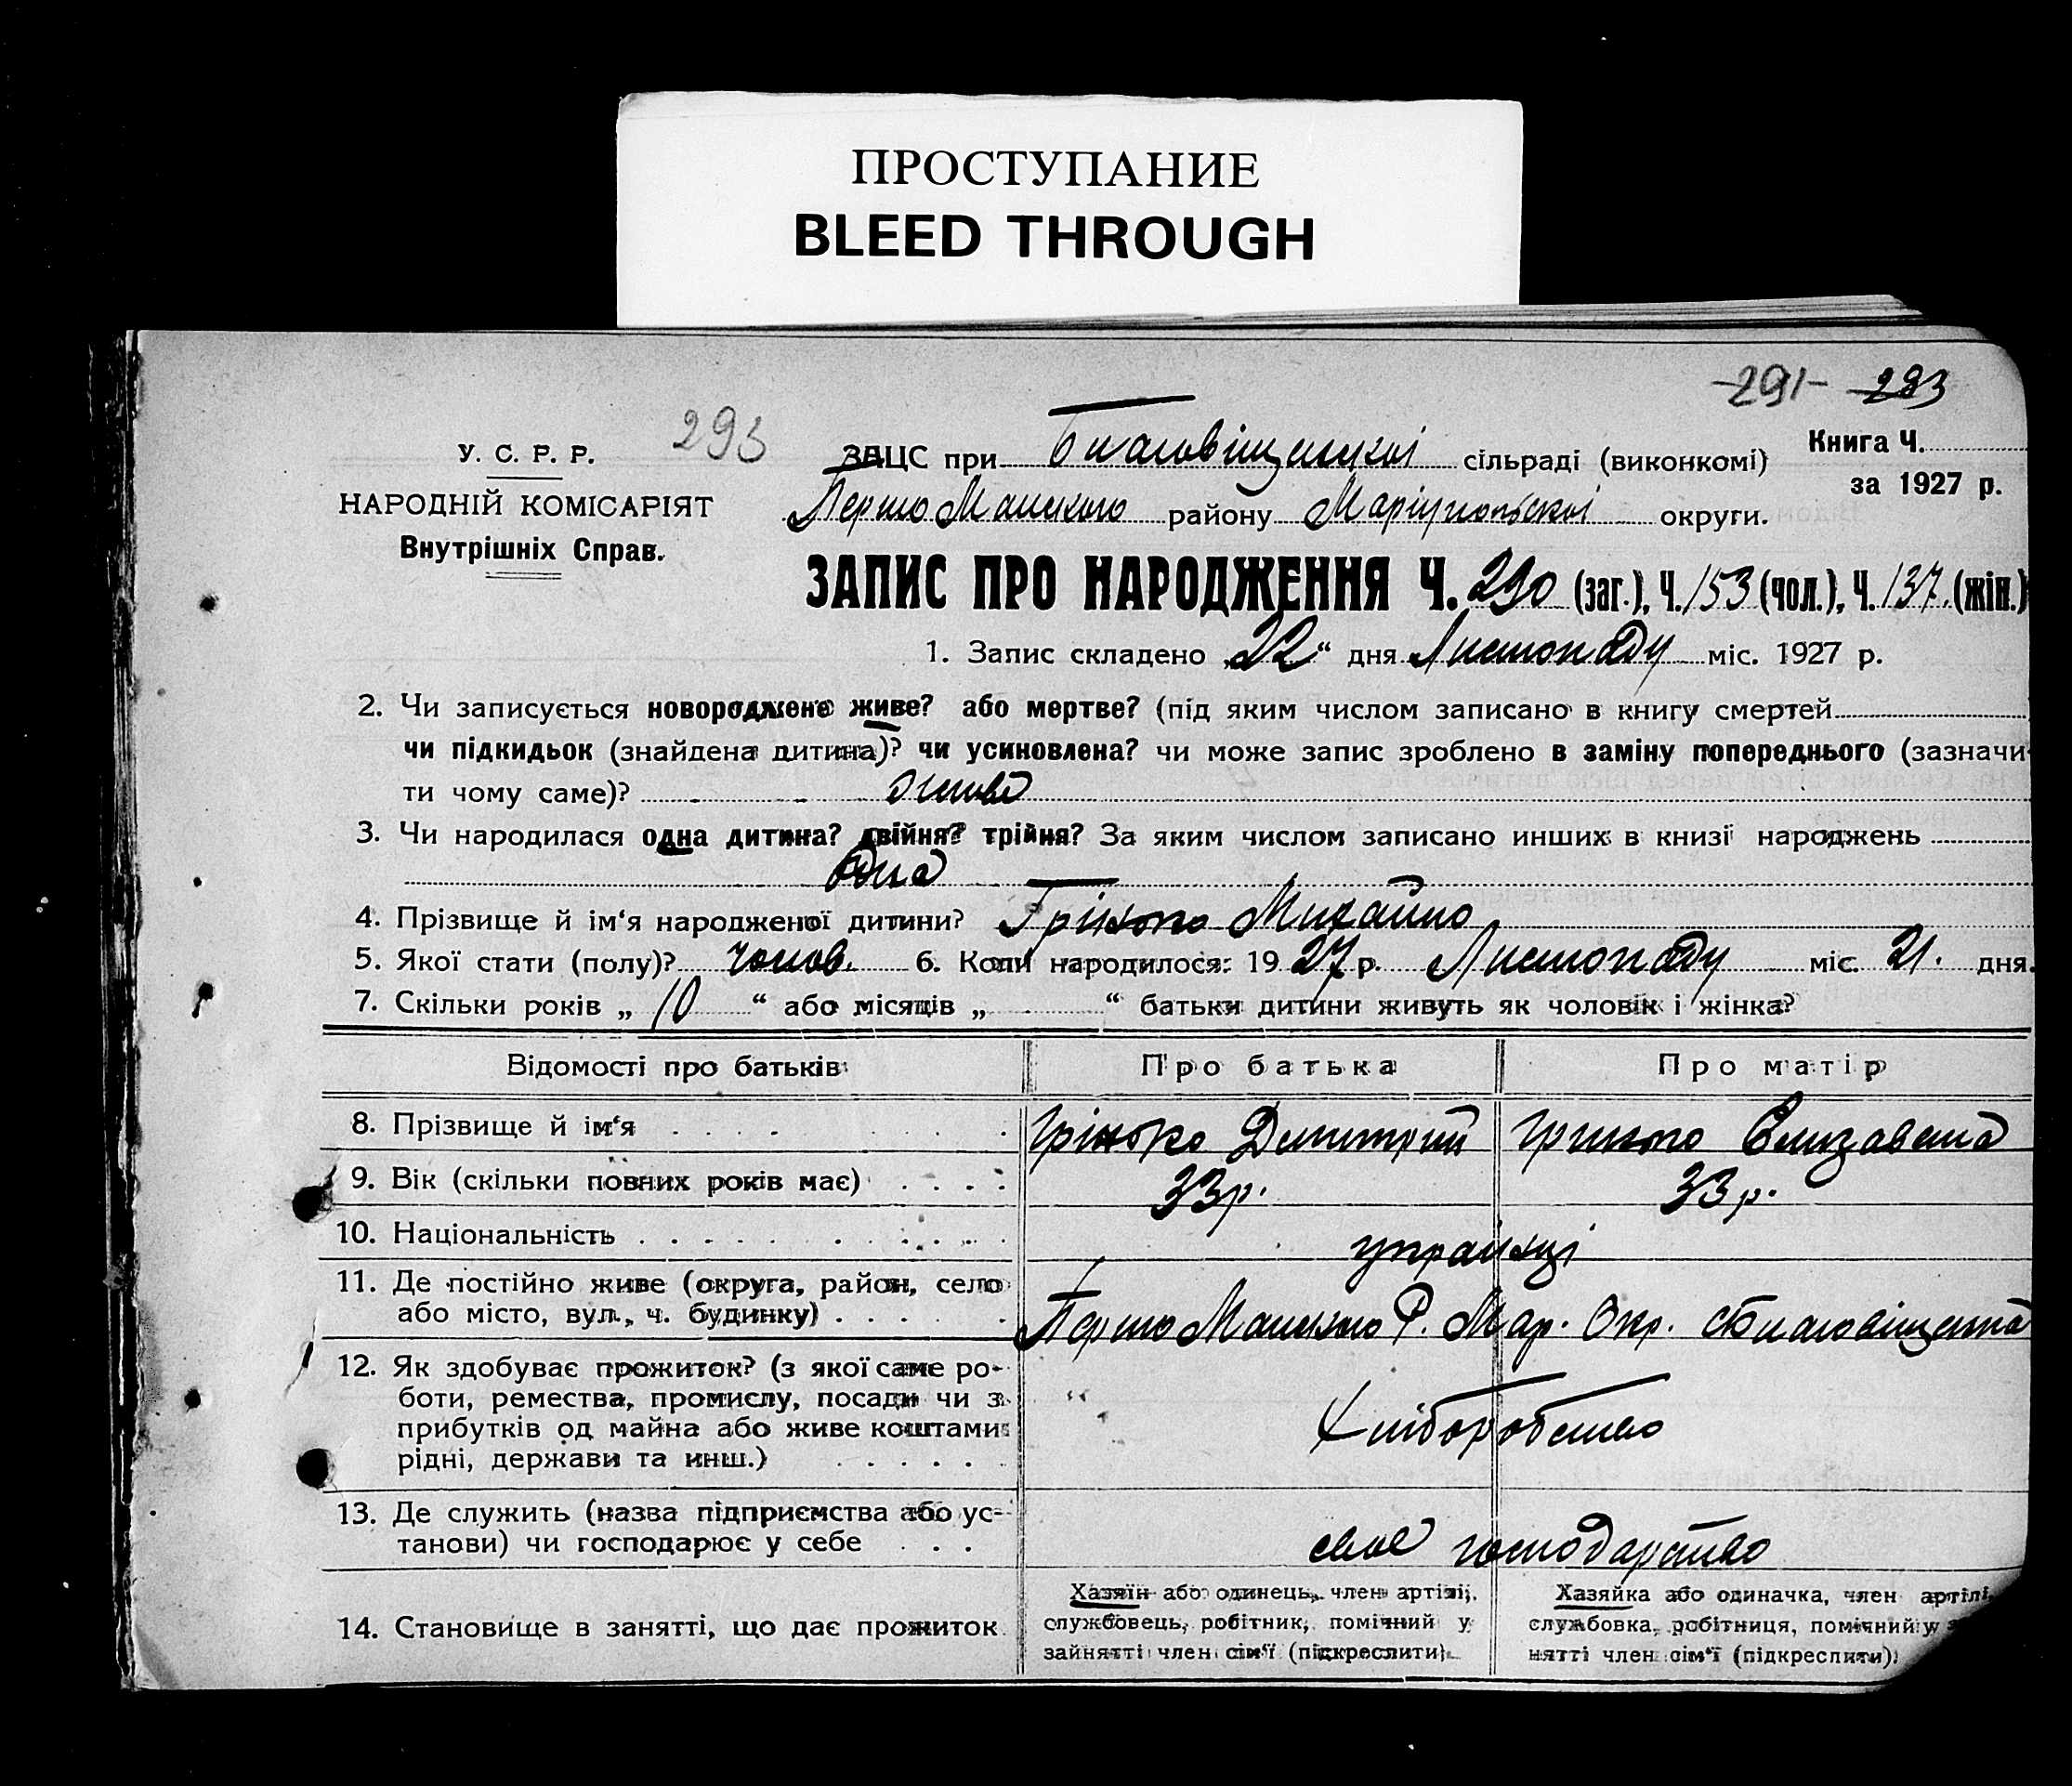 ПРОСТУПАНИЕ
BLEED THROUGH
-291- 293
293
У. С. Р. Р.
НАРОДНІЙ КОМІСАРІЯТ
Внутрішніх Справ.
ЗАЦС при Благовіщенській сільраді (виконкомі)
Книга Ч.
за 1927 р.
Першо Маиского району Маріупольскоі округи.
ЗАПИС ПРО НАРОДЖЕННЯ Ч. 290 (заг.), Ч. 153 (чол.), Ч. 137. (жін.)
1. Запис складено „22“ дня Листопаду міс. 1927 р.
2. Чи записується новороджене живе? або мертве? (під яким числом записано в книгу смертей
чи підкидьок (знайдена дитина)? чи усиновлена? чи може запис зроблено в заміну попереднього (зазначи-
ти чому саме)? жива
3. Чи народилася одна дитина? двійня? трійня? За яким числом записано инших в книзі народжень
одна
4. Прізвище й ім‘я народженої дитини? Грінько Михайло
5. Якої стати (полу)? чолов. 6. Коли народилося: 1927 р. Листопаду міс. 21. дня.
7. Скільки років „ 10 “ або місяців „ “ батьки дитини живуть як чоловік і жінка?
Відомості про батьків Про батька Про матір
8. Прізвище й ім‘я Грінько Дмитрий Гринько Єлизавета
9. Вік (скільки повних років має) 33 р. 33 р.
10. Національність українці
11. Де постійно живе (округа, район, село
або місто, вул., ч. будинку) Першо Маиского Р. Мар. Окр. с Благовіщенка
12. Як здобуває прожиток? (з якої саме ро-
боти, ремества, промислу, посади чи з
прибутків од майна або живе коштами
рідні, держави та инш.) Хліборобство
13. Де служить (назва підприємства або ус-
танови) чи господарює у себе свое господарство
14. Становище в занятті, що дає прожиток
Хазяїн або одинець, член артілі,
службовець, робітник, помічний у
зайнятті член сім‘ї (підкреслити).
Хазяйка або одиначка, член артілі
службовка, робітниця, помічний у з
нятті член сім‘ї (підкреслити).